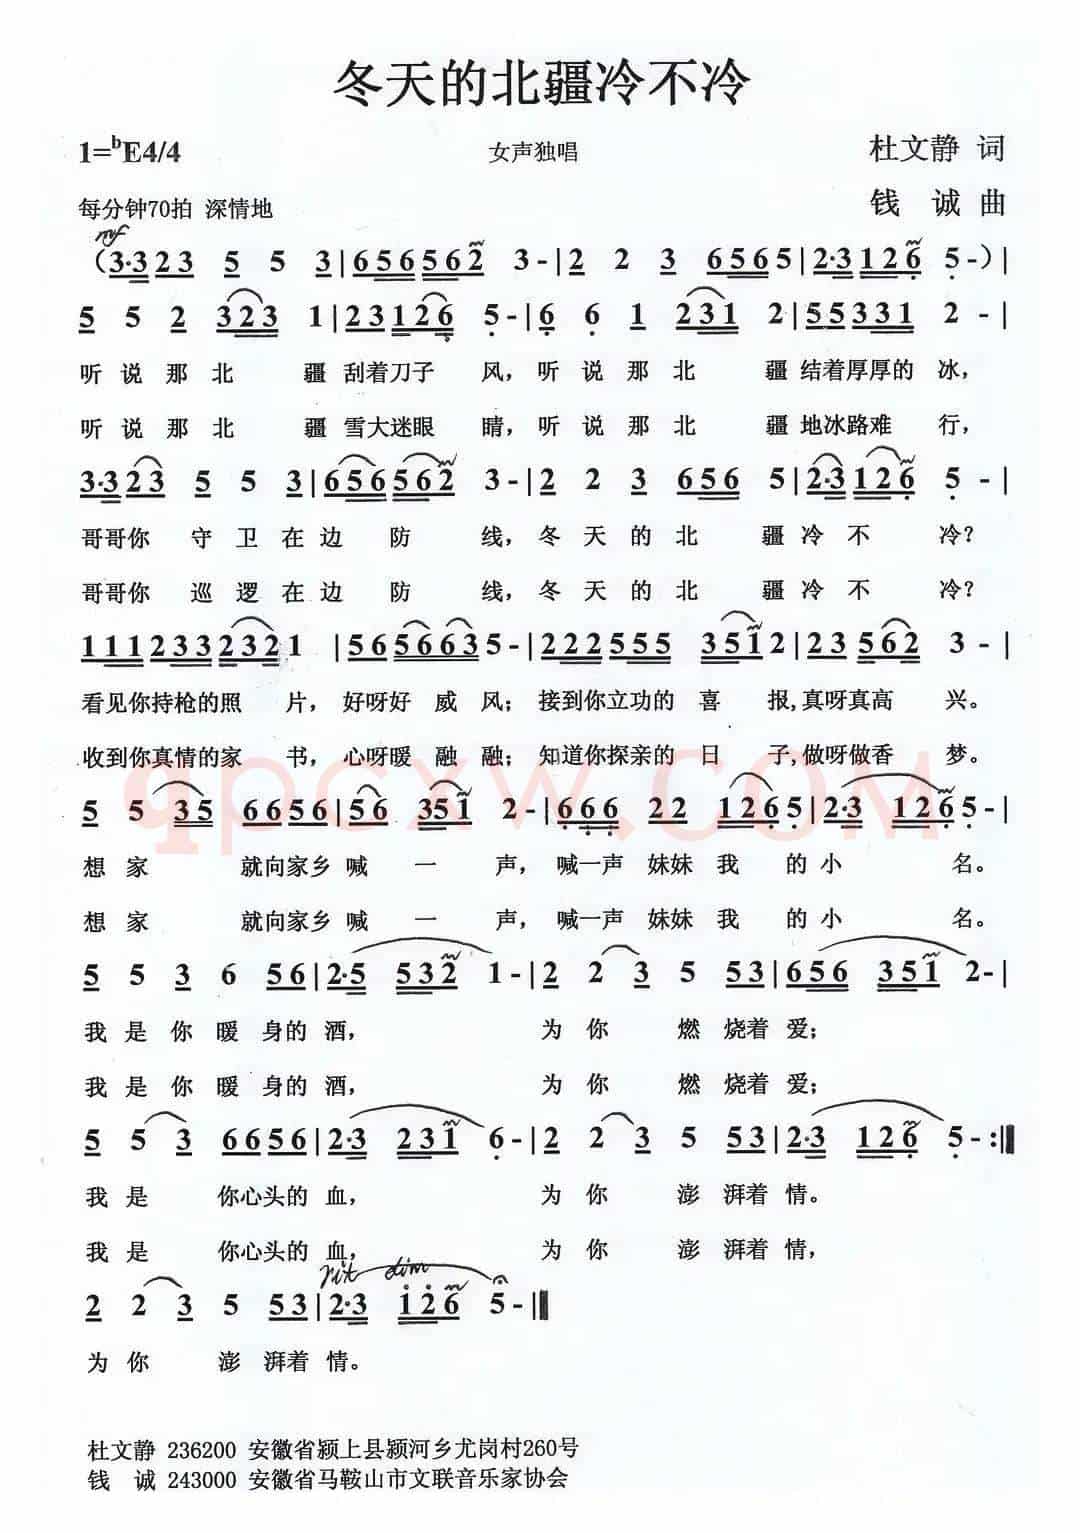 冬天的北疆冷不冷
1=bE4/4 女声独唱 杜文静 词
每分钟70拍 深情地 钱 诚 曲
mf
（3·3 2 3 5 5 3 | 6 5 6 5 6 2 3 - | 2 2 3 6 5 6 5 | 2·3 1 2 6 5 - ）|
5 5 2 3 2 3 1 | 2 3 1 2 6 5 - | 6 6 1 2 3 1 2 | 5 5 3 3 3 1 2 - |
听 说 那 北 疆 刮着刀子 风，听 说 那 北 疆 结着厚厚的 冰，
听 说 那 北 疆 雪大迷眼 睛，听 说 那 北 疆 地冰路难 行，
3·3 2 3 5 5 3 | 6 5 6 5 6 2 3 - | 2 2 3 6 5 6 5 | 2·3 1 2 6 5 - |
哥哥你 守 卫 在 边 防 线，冬 天 的 北 疆 冷 不 冷？
哥哥你 巡 逻 在 边 防 线，冬 天 的 北 疆 冷 不 冷？
1 1 1 2 3 3 2 3 2 1 | 5 6 5 6 6 3 5 - | 2 2 2 5 5 5 3 5 1 2 | 2 3 5 6 2 3 - |
看见你持枪的照 片，好呀好 威 风；接到你立功的 喜 报,真呀真高 兴。
收到你真情的家 书，心呀暖 融 融；知道你探亲的 日 子,做呀做香 梦。
qpcxw.com
5 5 3 5 6 6 5 6 | 5 6 3 5 1 2 - | 6 6 6 2 2 1 2 6 5 | 2·3 1 2 6 5 - |
想 家 就向家乡 喊 一 声，喊一声 妹妹 我 的 小 名。
想 家 就向家乡 喊 一 声，喊一声 妹妹 我 的 小 名。
5 5 3 6 5 6 | 2·5 5 3 2 1 - | 2 2 3 5 5 3 | 6 5 6 3 5 1 2 - |
我 是 你 暖 身的 酒， 为 你 燃 烧着 爱；
我 是 你 暖 身的 酒， 为 你 燃 烧着 爱；
5 5 3 6 6 5 6 | 2·3 2 3 1 6 - | 2 2 3 5 5 3 | 2·3 1 2 6 5 - :‖
我 是 你心头的 血， 为 你 澎 湃着 情。
我 是 你心头的 血， 为 你 澎 湃着 情，
rit dim
2 2 3 5 5 3 | 2·3 1 2 6 5 - ‖
为 你 澎 湃着 情。
杜文静 236200 安徽省颍上县颍河乡尤岗村260号
钱 诚 243000 安徽省马鞍山市文联音乐家协会